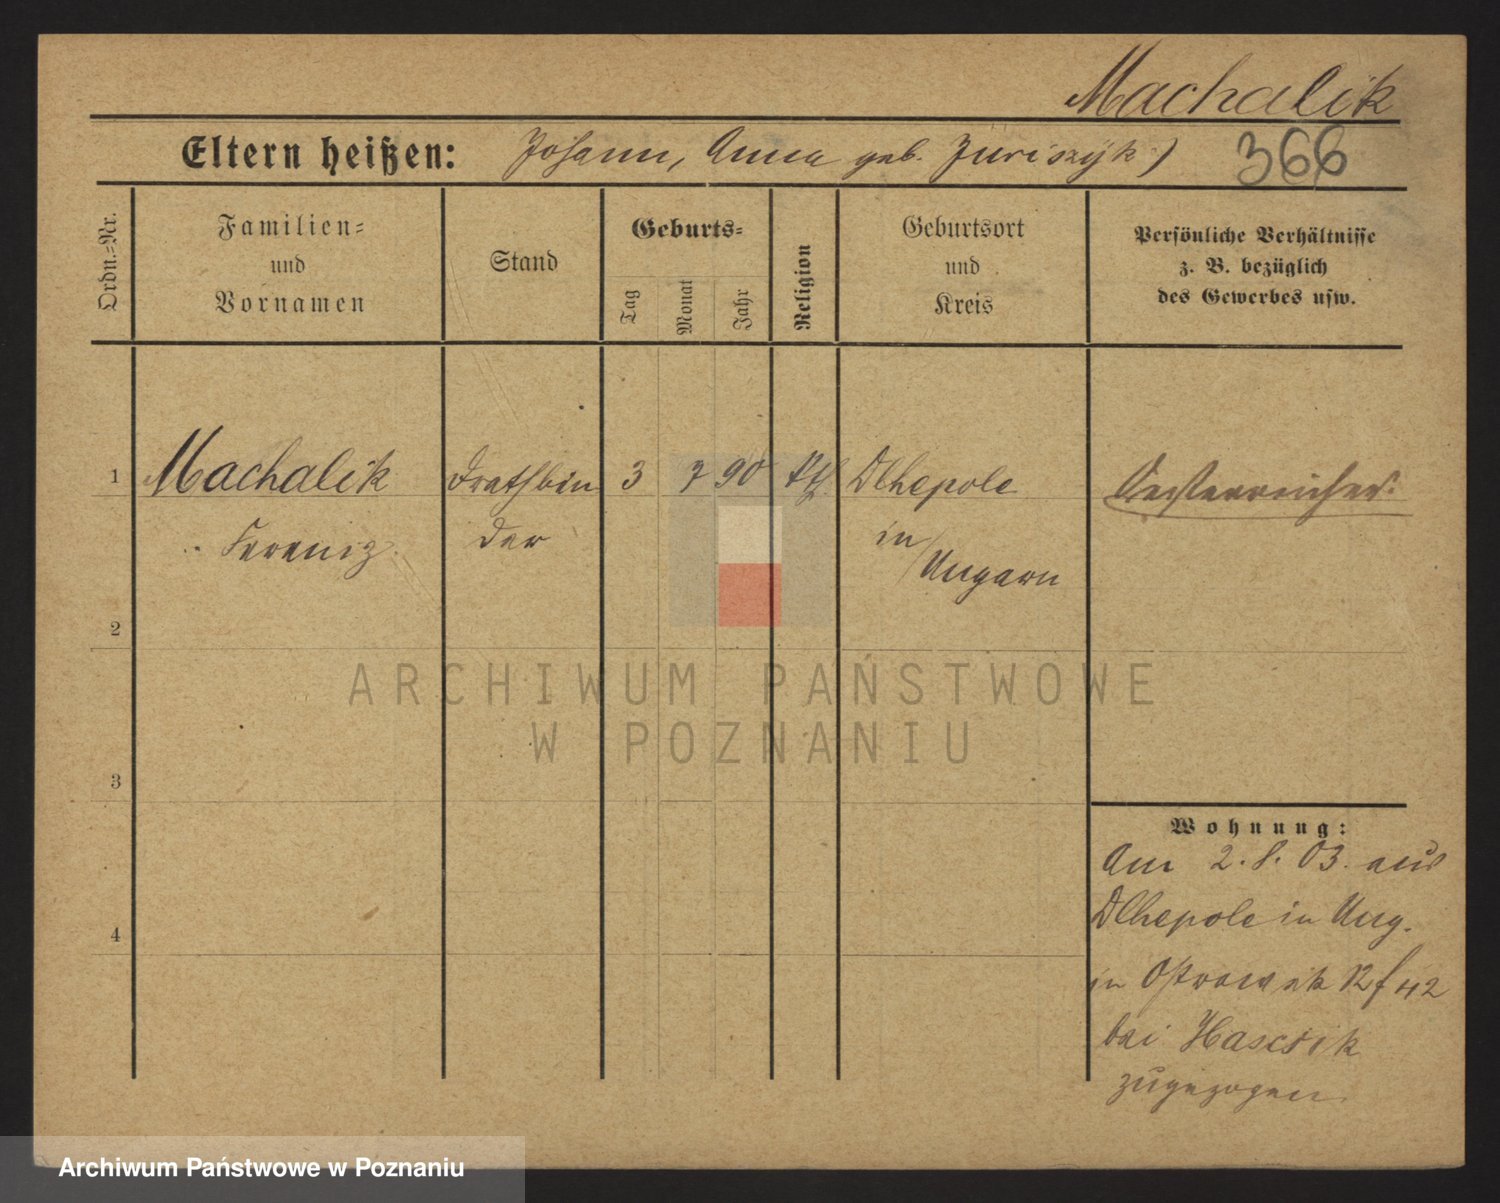 Machalik
Eltern heißen: Johann, Anna geb. Juriszyk)
366
Ordn.-Nr.
Familien-
und
Vornamen
Stand
Geburts-
Tag
Monat
Jahr
Religion
Geburtsort
und
Kreis
Persönliche Verhältnisse
z. B. bezüglich
des Gewerbes usw.
1 Machalik Drathbin 3 7 90 Dlhepole Oesterreicher.
der in
Ungarn
2
3
4
ARCHIWUM PAŃSTWOWE
W POZNANIU
Wohnung:
Am 2.8.03. aus
Dlhepole in Ung.
in 42
bei Hascsik
zugezogen.
Archiwum Państwowe w Poznaniu